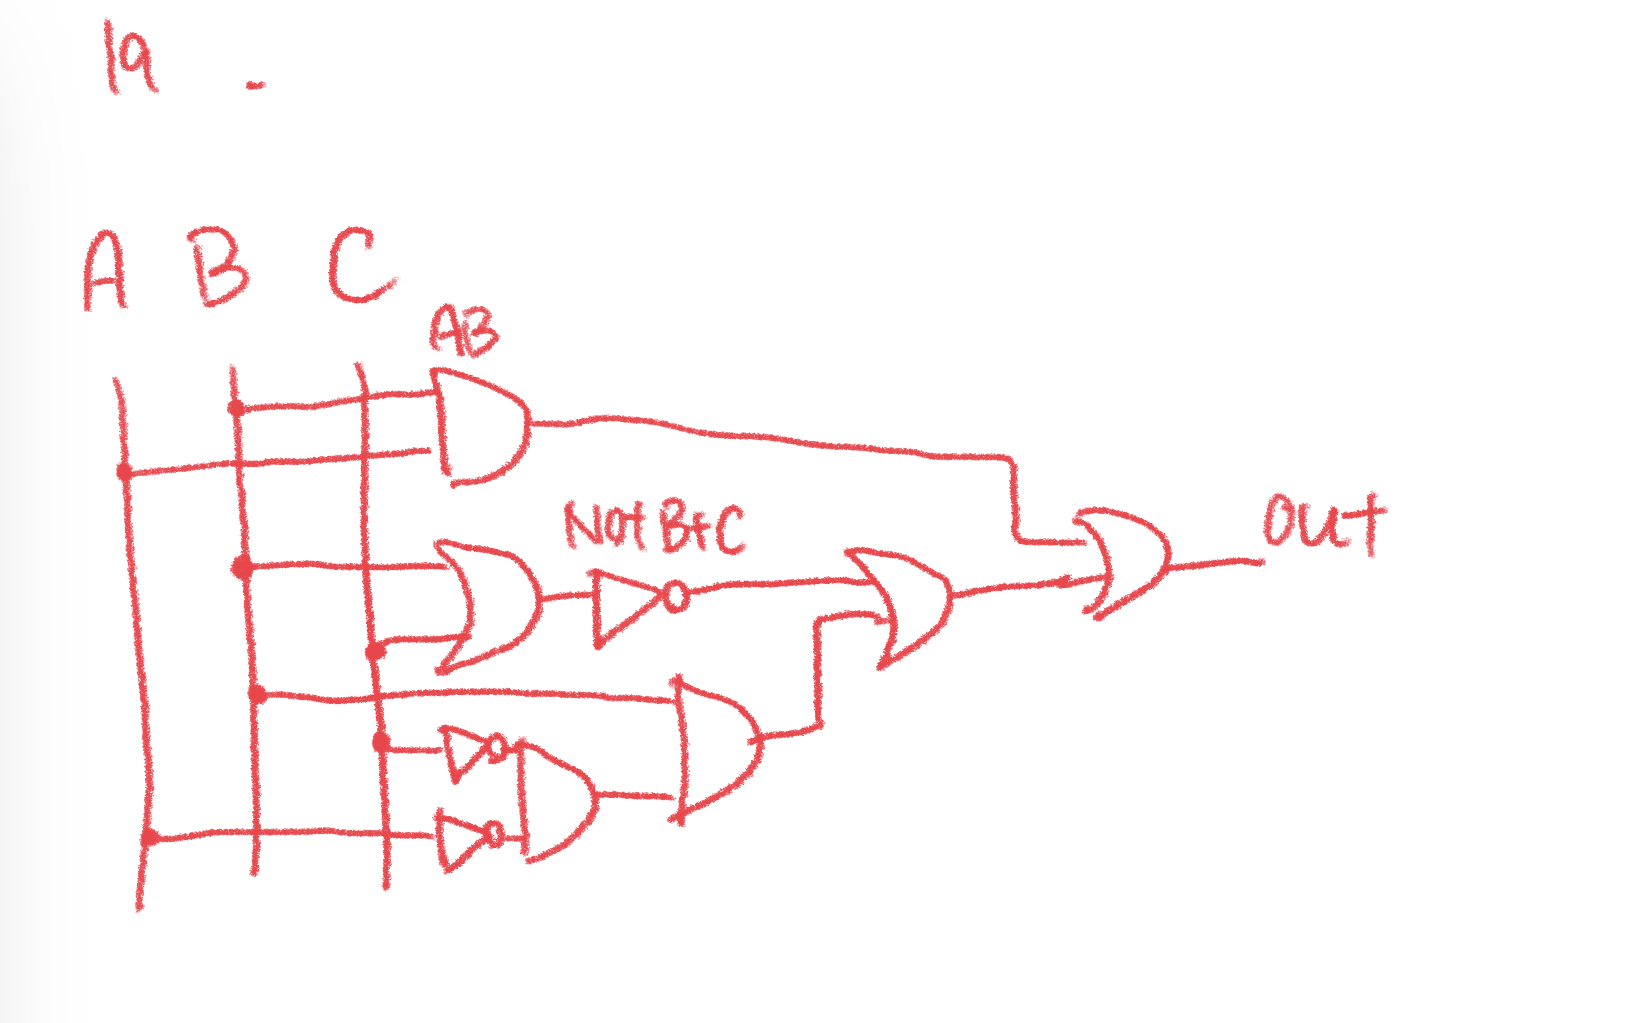 1a -
A B C
AB
Not B+C
OUT